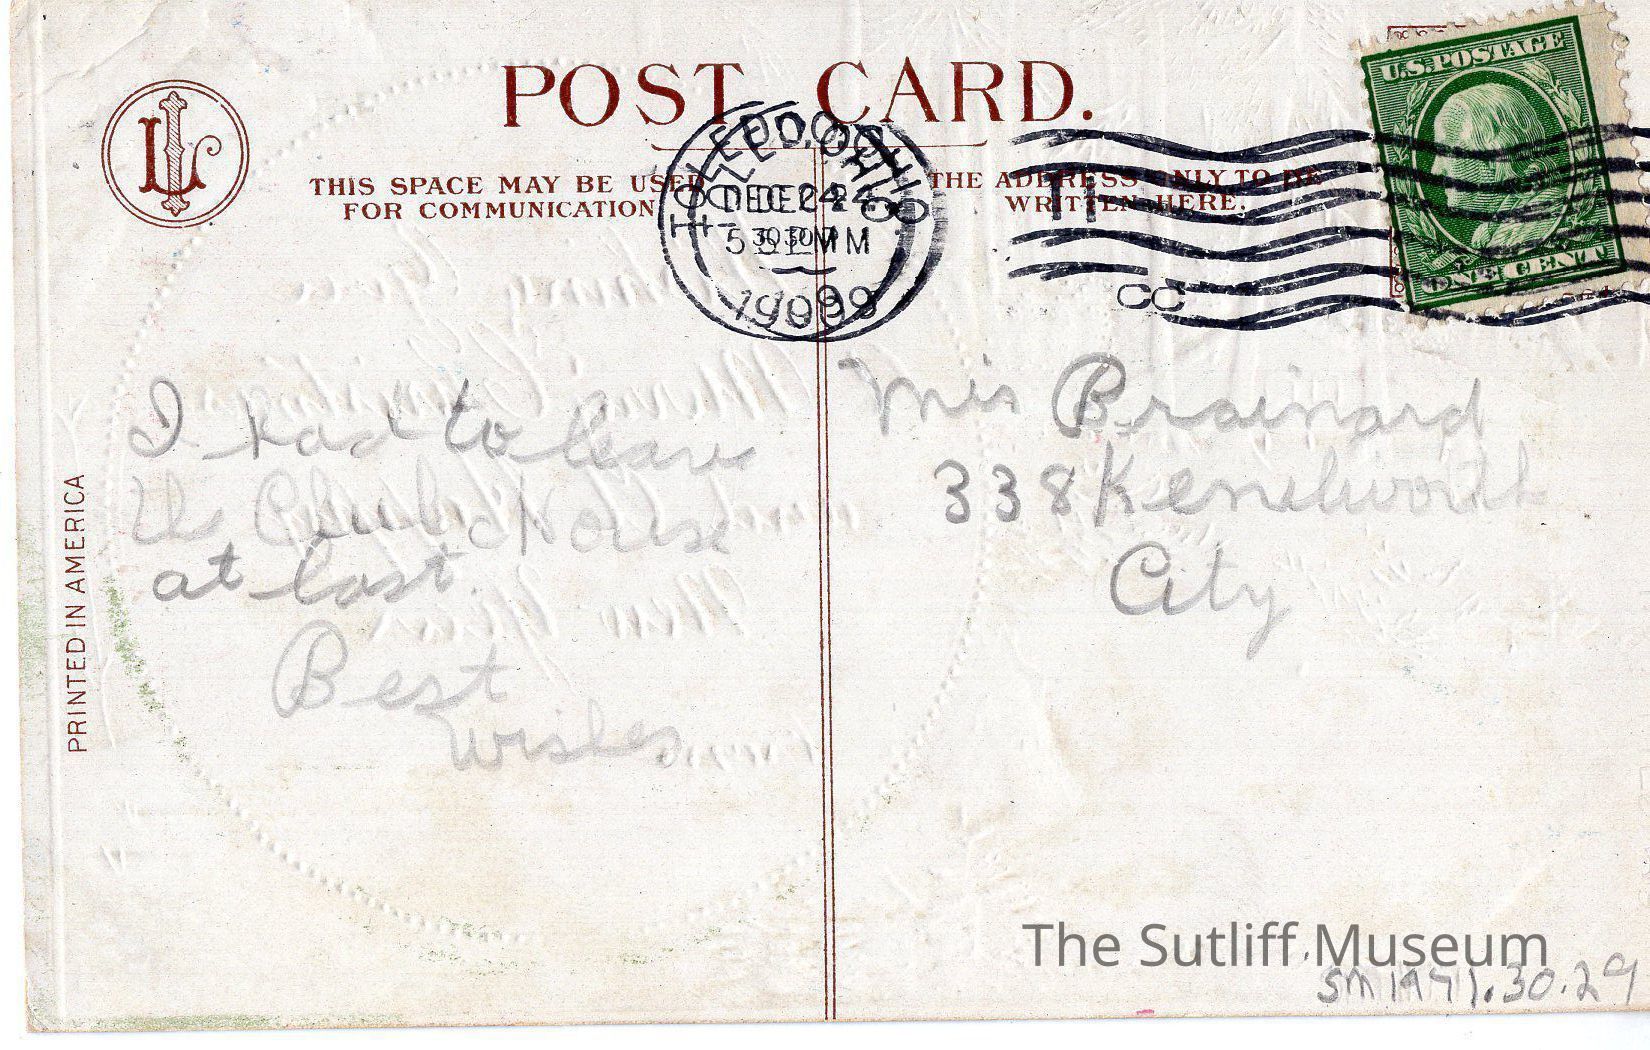 POST CARD.
THIS SPACE MAY BE USED
FOR COMMUNICATION
THE ADDRESS ONLY TO BE
WRITTEN HERE.
TOLEDO, OHIO
DEC 24
5 30 PM
1909
U.S. POSTAGE
ONE CENT
PRINTED IN AMERICA
I had to leave
the Club House
at last.
Best
Wishes
Mis Brainard
338 Kenilworth
City
The Sutliff Museum
SM 1971.30.29